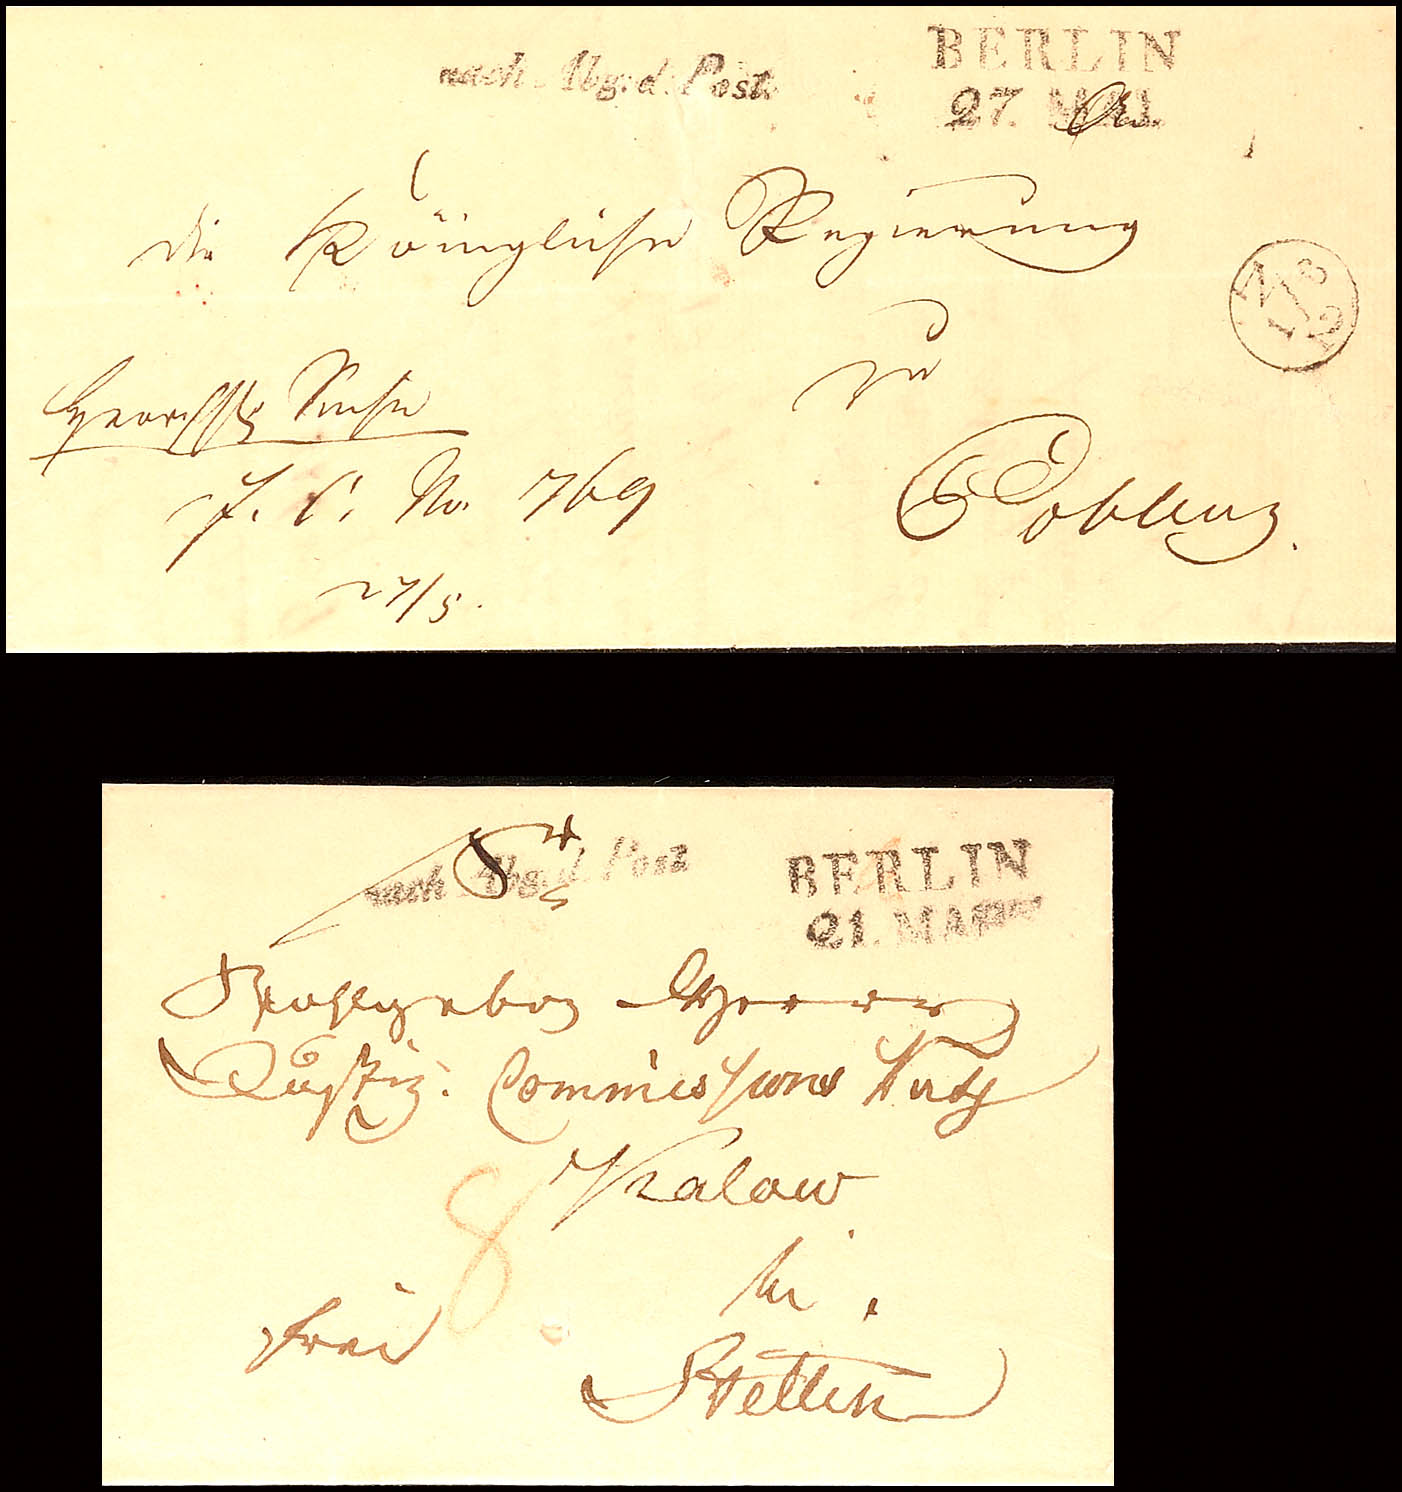 nach Abg. d. Post.
BERLIN
27. MAI.
die Königliche Regierung
zu
Coblenz.
Herrschftl. Sache
J. C. No. 769
27/5.
N 3
1 2
nach Abg. d. Post
BERLIN
21. MA
Wohlgebor Herrn
Justiz. Commissions Rath
Kalow
in
Stettin
8
frei